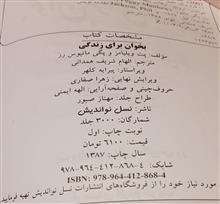 مشخصات کتاب
بخوان برای زندگی
مؤلف: پت ویلیامز و پگی ماتیوس رز
مترجم: الهام شریف همدانی
ویراستار: پیرایه کلهر
ویرایش نهایی: زهرا صفاری
حروف‌چینی و صفحه‌آرایی: الهه ایمنی
طراح جلد: مهناز صبور
ناشر: نسل نواندیش
شمارگان: ۳۰۰۰ جلد
نوبت چاپ: اول
قیمت: ۶۱۰۰ تومان
سال چاپ: ۱۳۸۷
شابک: ۴-۸۶۸-۴۱۲-۹۶۴-۹۷۸
ISBN: 978-964-412-868-4
مورد نیاز خود را از فروشگاه‌های انتشارات نسل نواندیش تهیه فرمایید